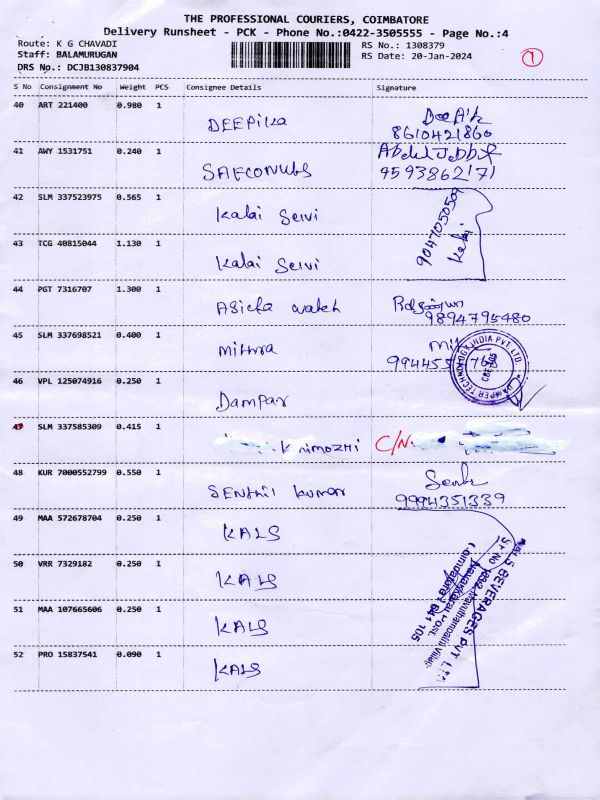 THE PROFESSIONAL COURIERS, COIMBATORE
Delivery Runsheet - PCK - Phone No.:0422-3505555 - Page No.:4
Route: K G CHAVADI RS No.: 1308379
Staff: BALAMURUGAN RS Date: 20-Jan-2024
DRS No.: DCJB130837904 1
S No Consignment No Weight PCS Consignee Details Signature
40 ART 221400 0.980 1
DEEPika
8610421860
41 AWY 1531751 0.240 1
9593862171
42 SLM 337523975 0.565 1
Kalai Selvi 9047050509
43 TCG 40815044 1.130 1
Kalai Selvi Kalai
44 PGT 7316707 1.300 1
9894795480
45 SLM 337698521 0.400 1
mithra
46 VPL 125074916 0.250 1
Dampar
47 SLM 337585309 0.415 1
C/N
48 KUR 7000552799 0.550 1
SENthil kumar 9994351339
49 MAA 572678704 0.250 1
KALS
50 VRR 7329182 0.250 1
KALS
51 MAA 107665606 0.250 1
KALS
52 PRO 15837541 0.090 1
KALS
S BEVERAGES PVT
641 105